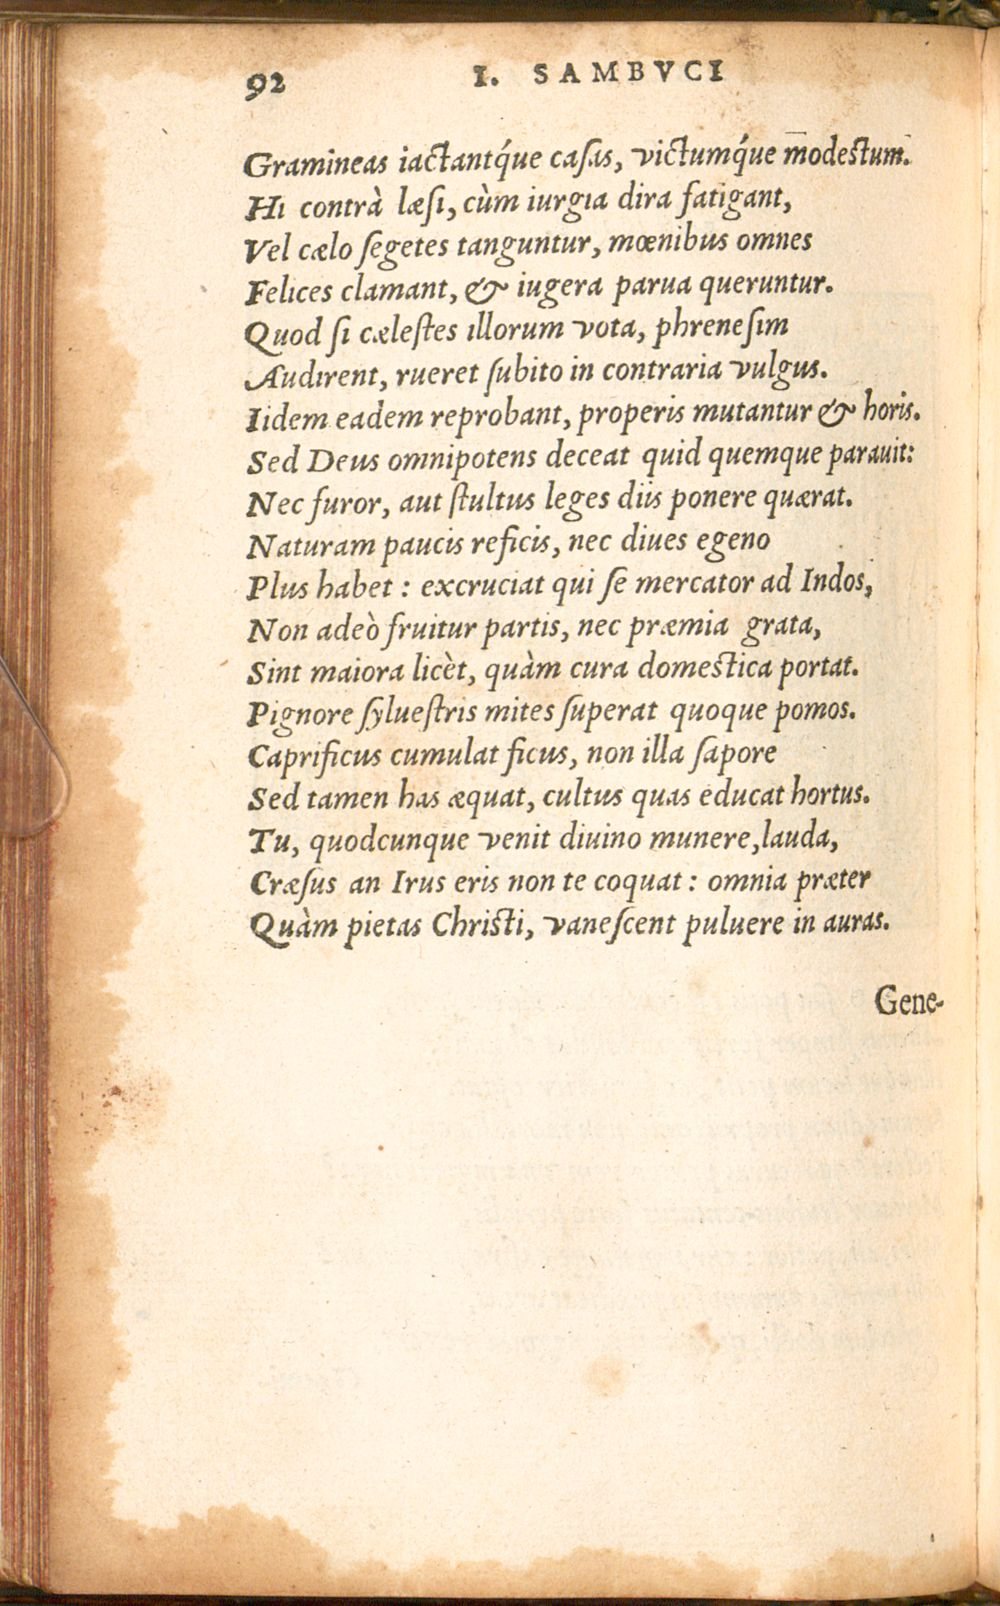 92 I. SAMBVCI
Gramineas iactantq́ue casas, victumq́ue modestum.
Hi contrà læsi, cùm iurgia dira fatigant,
Vel cælo segetes tanguntur, mœnibus omnes
Felices clamant, & iugera parua queruntur.
Quod si cælestes illorum vota, phrenesim
Audirent, rueret subito in contraria vulgus.
Iidem eadem reprobant, properis mutantur & horis.
Sed Deus omnipotens deceat quid quemque parauit:
Nec furor, aut stultus leges diis ponere quærat.
Naturam paucis reficis, nec diues egeno
Plus habet : excruciat qui se mercator ad Indos,
Non adeò fruitur partis, nec præmia grata,
Sint maiora licèt, quàm cura domestica portat.
Pignore syluestris mites superat quoque pomos.
Caprificus cumulat ficus, non illa sapore
Sed tamen has æquat, cultus quas educat hortus.
Tu, quodcunque venit diuino munere, lauda,
Cræsus an Irus eris non te coquat : omnia præter
Quàm pietas Christi, vanescent puluere in auras.
Gene-